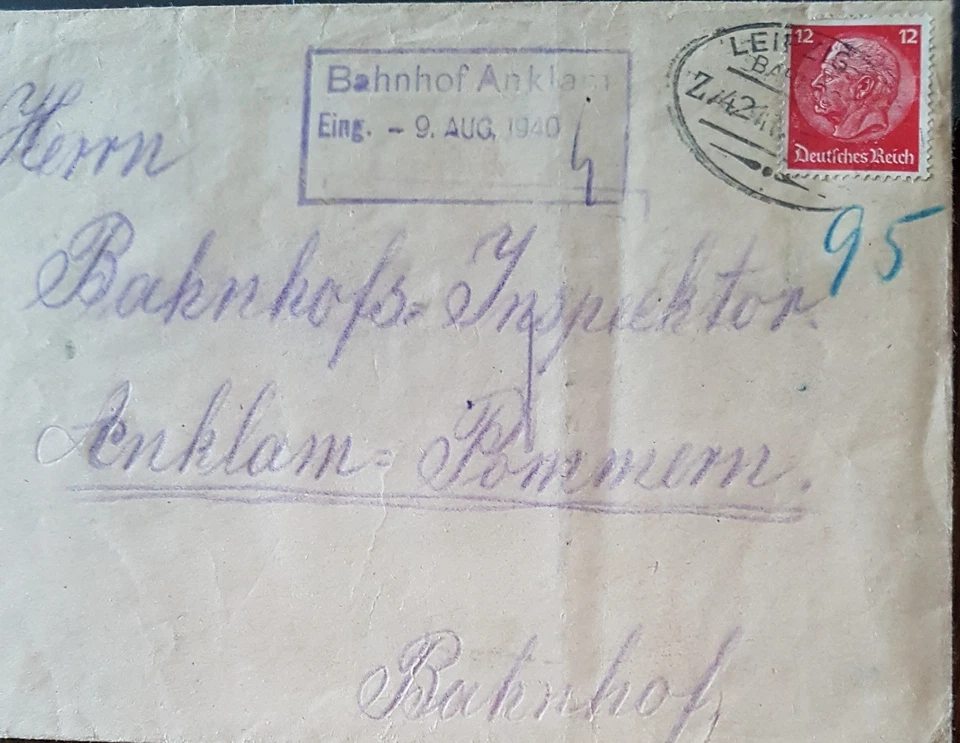 Bahnhof Anklam
Eing. - 9. AUG. 1940
LEIPZIG
12 12
Deutsches Reich
95
Herrn
Bahnhofs-Inspektor.
Anklam-Pommern.
Bahnhof.